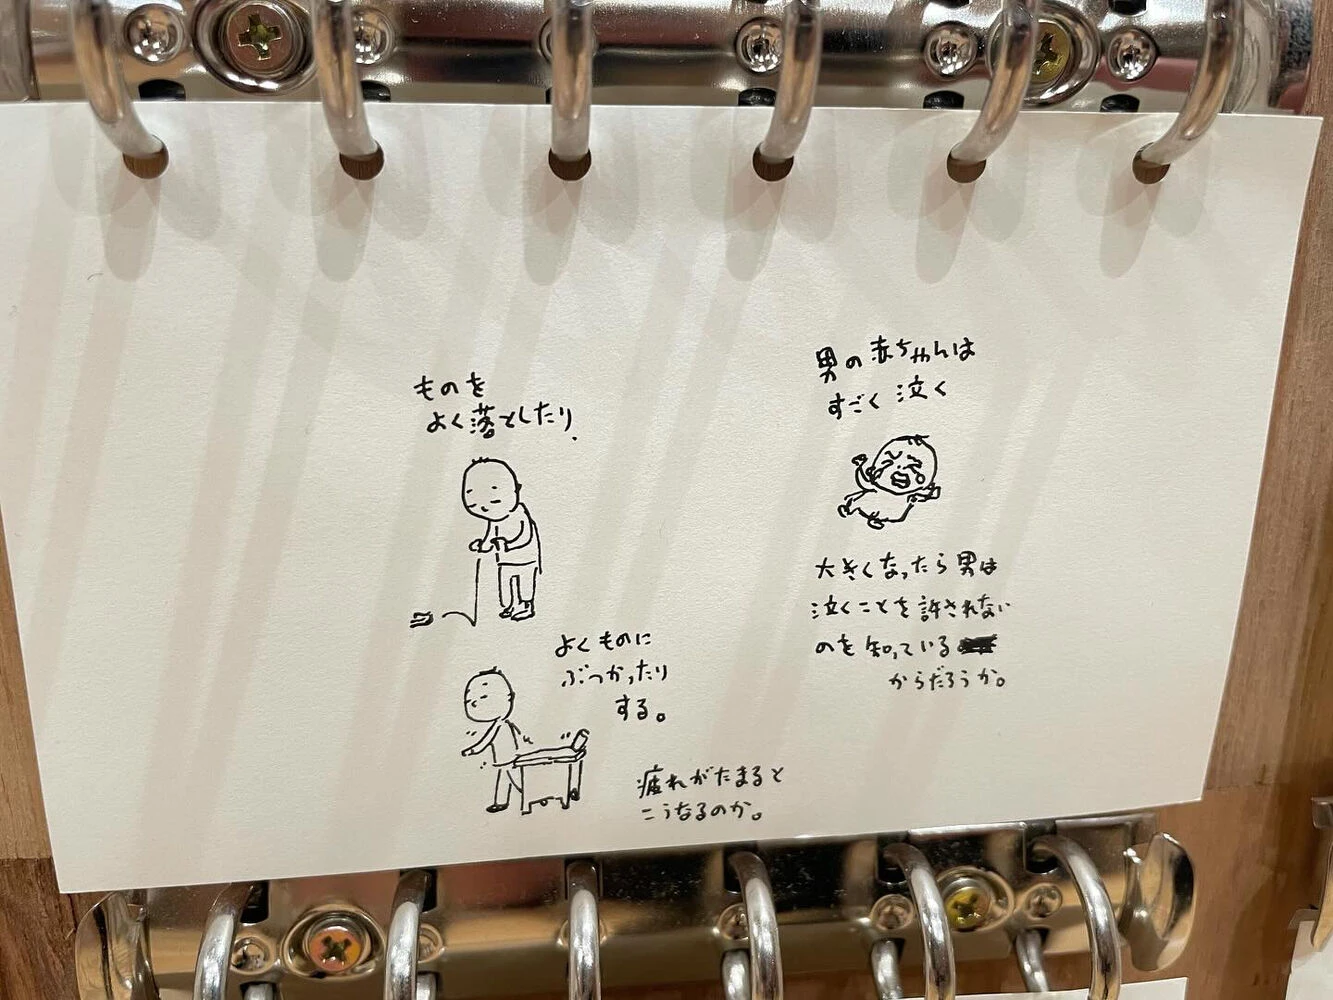 ものを
よく落としたり、
よくものに
ぶつかったり
する。
疲れがたまると
こうなるのか。
男の赤ちゃんは
すごく泣く
大きくなったら男は
泣くことを許されない
のを知っている
からだろうか。